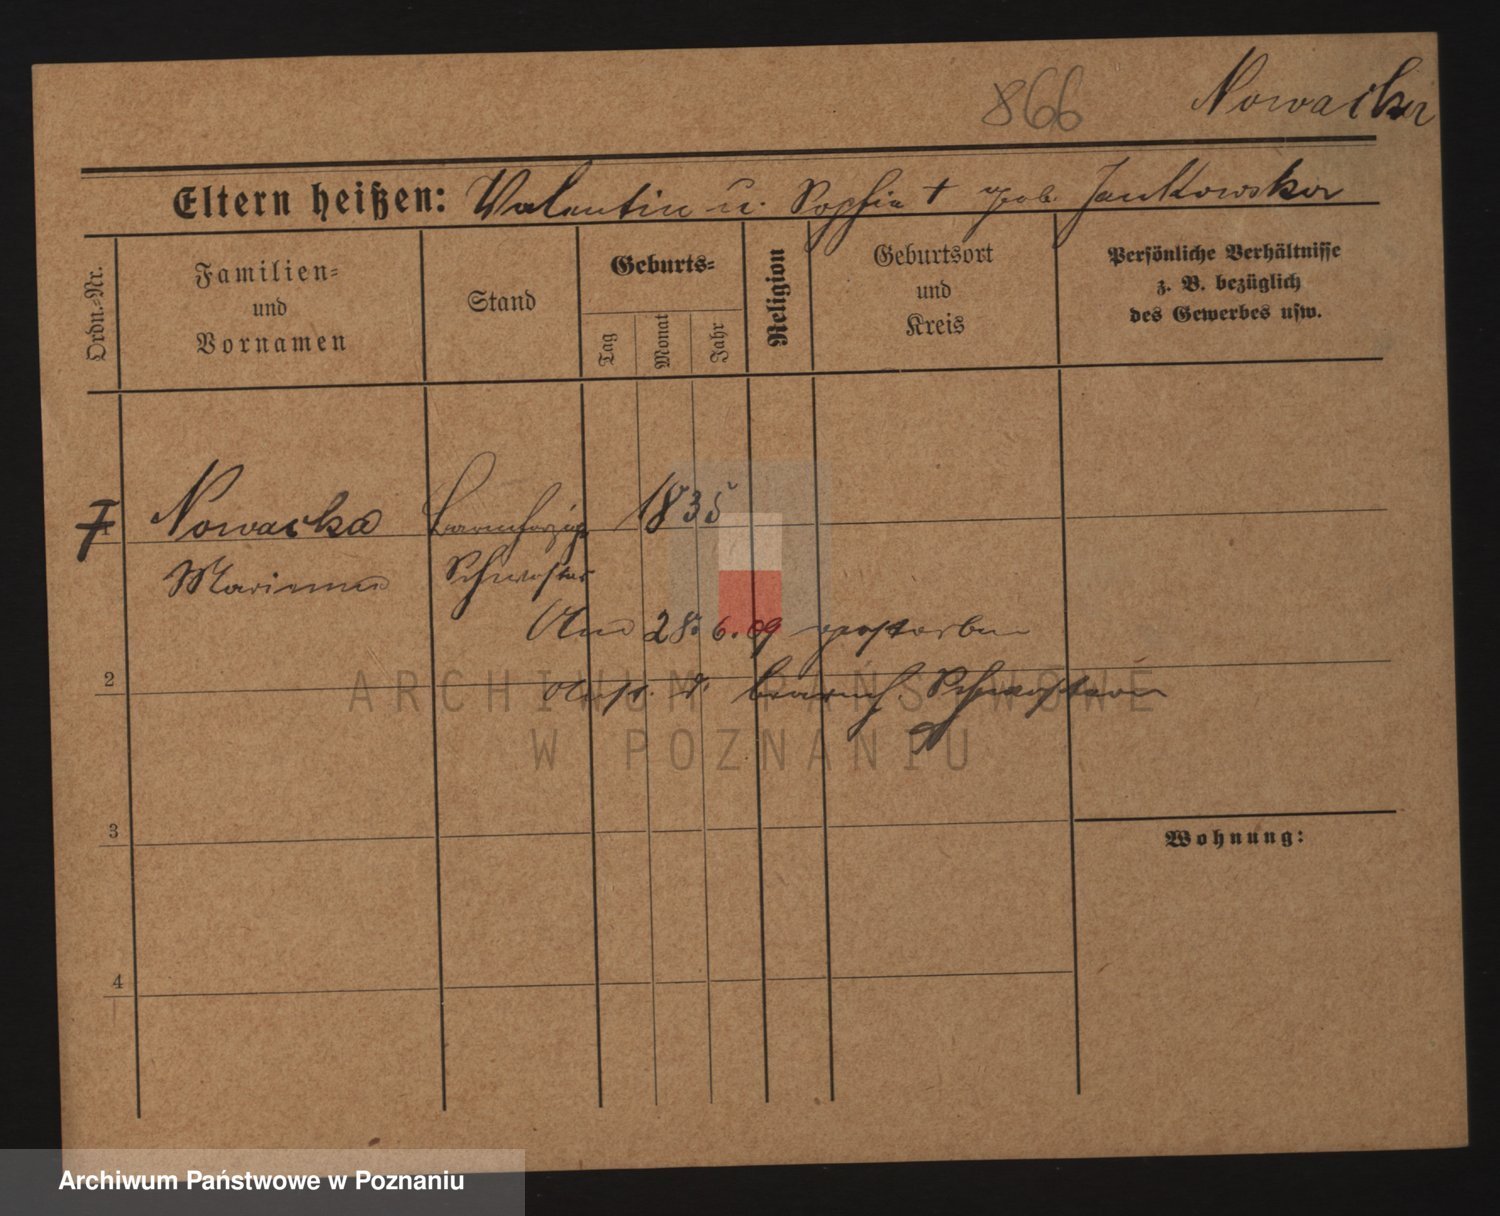 866 Nowacka
Eltern heißen: Valentin u. Sophia † geb. Jankowska
Ordn.-Nr.
Familien- und Vornamen
Stand
Geburts-
Tag
Monat
Jahr
Religion
Geburtsort und Kreis
Persönliche Verhältnisse z. B. bezüglich des Gewerbes usw.
Nowacka Barmherzige 1835
Marianna Schwester
Am 28.6.09 gestorben
2
d. barmh. Schwestern
3
Wohnung:
4
ARCHIWUM PAŃSTWOWE
W POZNANIU
Archiwum Państwowe w Poznaniu